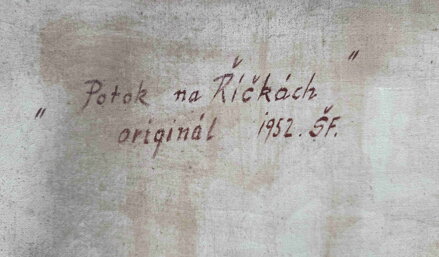 "Potok na Říčkách"
originál 1952. ŠF.